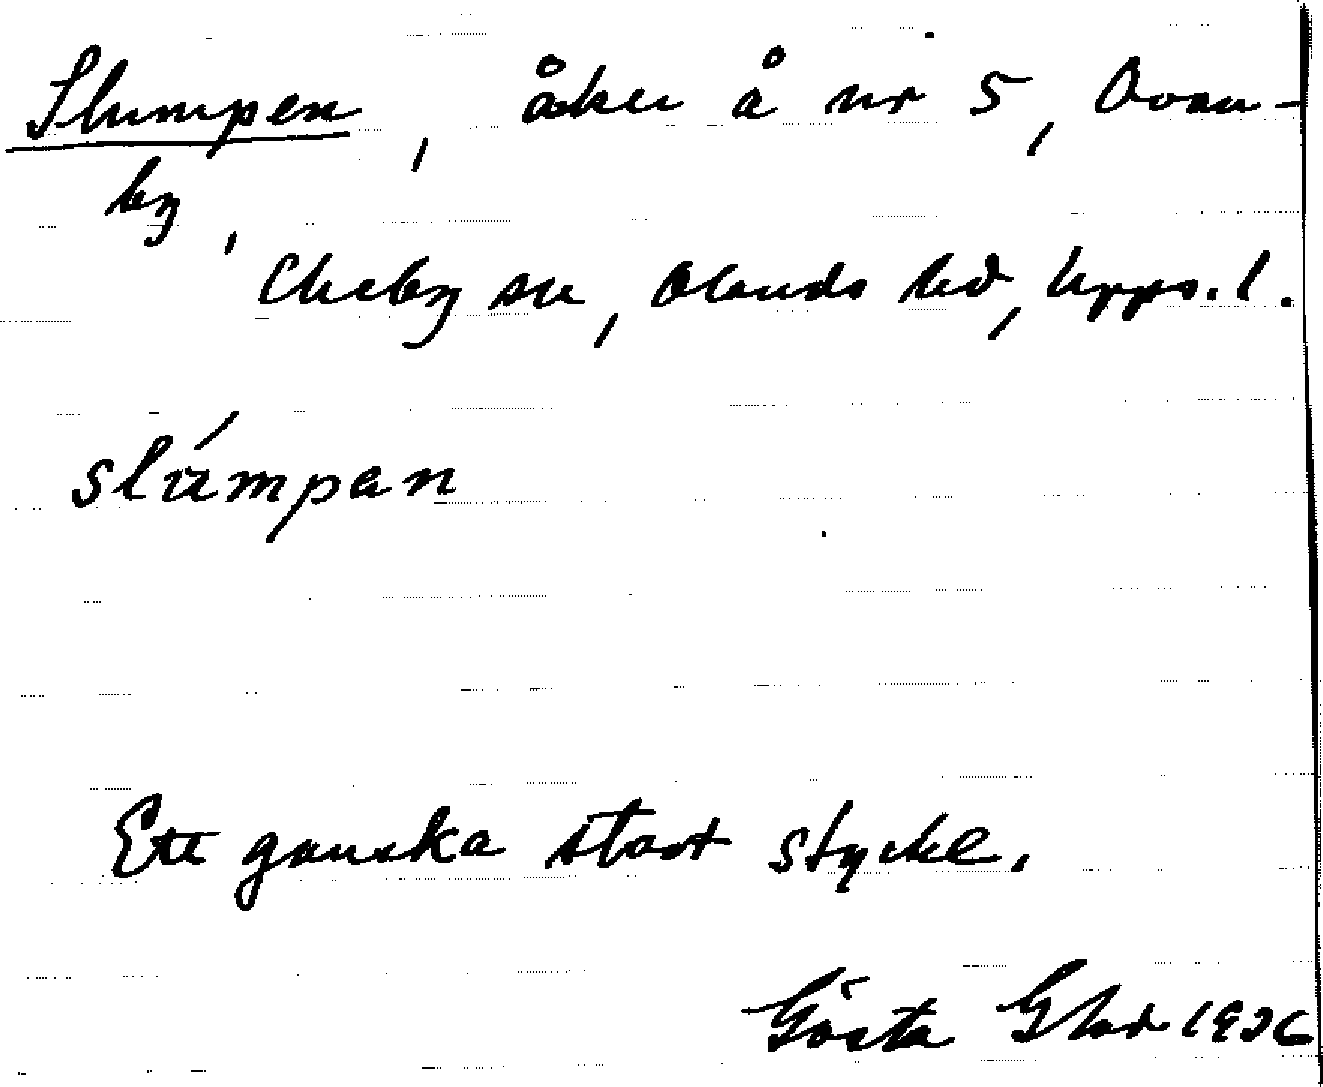 Slumpen, åker å nr 5, Ovan-
by,
Ekeby sn, Olands hd, Upps. l.
slúmpan
Ett ganska stort stycke.
Gösta Glad 1936